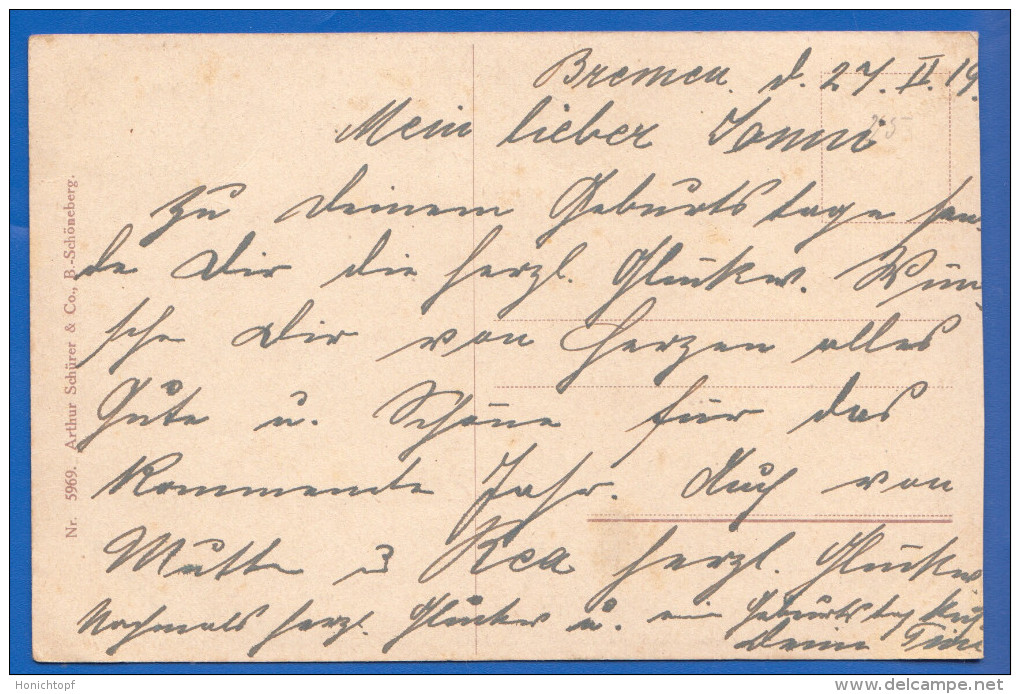 Bremen. d. 27. II. 19.
Mein lieber
Zu Deinem Geburtstage sen-
de Dir die herzl. Glückw. Wün-
sche Dir von Herzen alles
Gute u. Schöne für das
kommende Jahr. Auch von
Mutter u Rea herzl. Glückw
Nochmals herzl. Glückw u. ein Geburtstag
Deine
Nr. 5969. Arthur Schürer & Co., B.-Schöneberg.
Honichtopf
www.delcampe.net